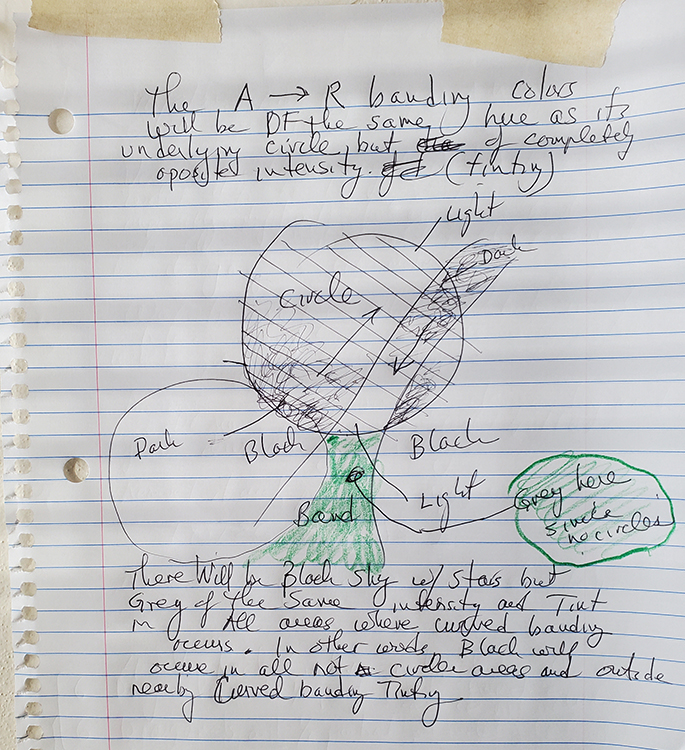 The A → R banding colors
will be Of the same, here as its
underlying circle, but of completely
oposited intensity. (tinting)
Light
Dark
Circle
Dark
Black
Black
Light
Band
Grey here
since
no circles
There Will be Black Sky w/ Stars but
Grey of the Same intensity and Tint
in All areas where curved banding
occurs. In other words, Black will
occur in all not circle areas and outside
nearby Curved banding Tinting